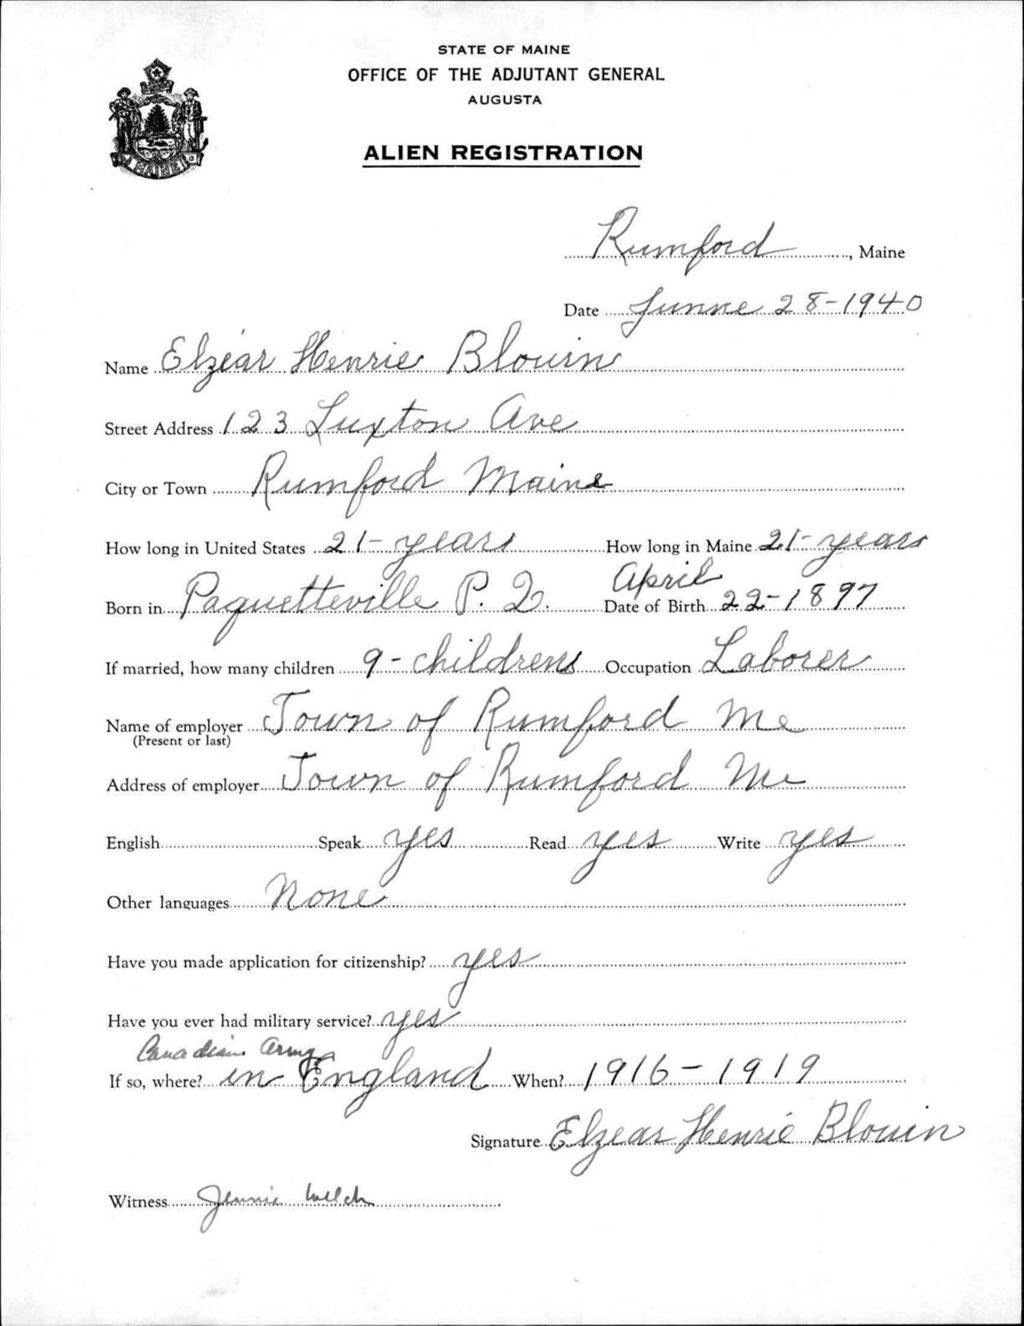 STATE OF MAINE
OFFICE OF THE ADJUTANT GENERAL
AUGUSTA
ALIEN REGISTRATION
MAINE
Rumford, Maine
Date Junne 28-1940
Name Elzéar Henrie Blouin
Street Address 123 Luxton Ave
City or Town Rumford Maine
How long in United States 21- years How long in Maine 21- years
Born in Paquetteville P. Q. Date of Birth April 22-1897
If married, how many children 9- childrens Occupation Laborer
Name of employer Town of Rumford Me
(Present or last)
Address of employer Town of Rumford Me
English Speak yes Read yes Write yes
Other languages None
Have you made application for citizenship? yes
Have you ever had military service? yes
Canadian Army
If so, where? in England When? 1916-1919
Signature Elzear Henrie Blouin
Witness Jennie Welch